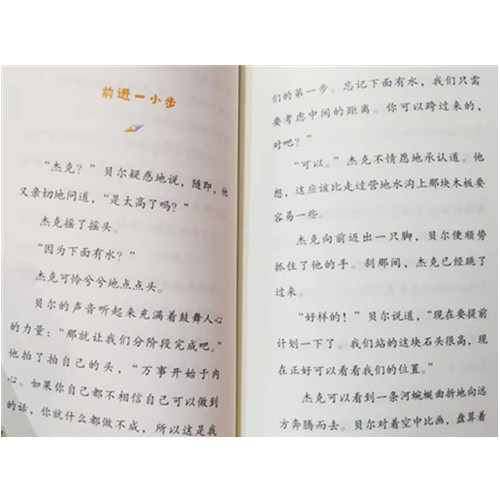 前进一小步
“杰克？”贝尔疑惑地说，随即，他
又亲切地问道，“是太高了吗？”
杰克摇了摇头。
“因为下面有水？”
杰克可怜兮兮地点点头。
贝尔的声音听起来充满着鼓舞人心
的力量：“那就让我们分阶段完成吧。”
他拍了拍自己的头，“万事开始于内
心。如果你自己都不相信自己可以做到
的话，你就什么都做不成，所以这是我
们的第一步。忘记下面有水，我们只需
要考虑中间的距离。你可以跨过来的，
对吧？”
“可以。”杰克不情愿地承认道。他
想，这应该比走过营地水沟上那块木板要
容易一些。
杰克向前迈出一只脚，贝尔便顺势
抓住了他的手。刹那间，杰克已经跳了
过来。
“好样的！”贝尔说道，“现在要提前
计划一下了。我们站的这块石头很高，现
在正好可以看看我们的位置。”
杰克可以看到一条河蜿蜒曲折地向远
方奔腾而去。贝尔对着空中比画，盘算着